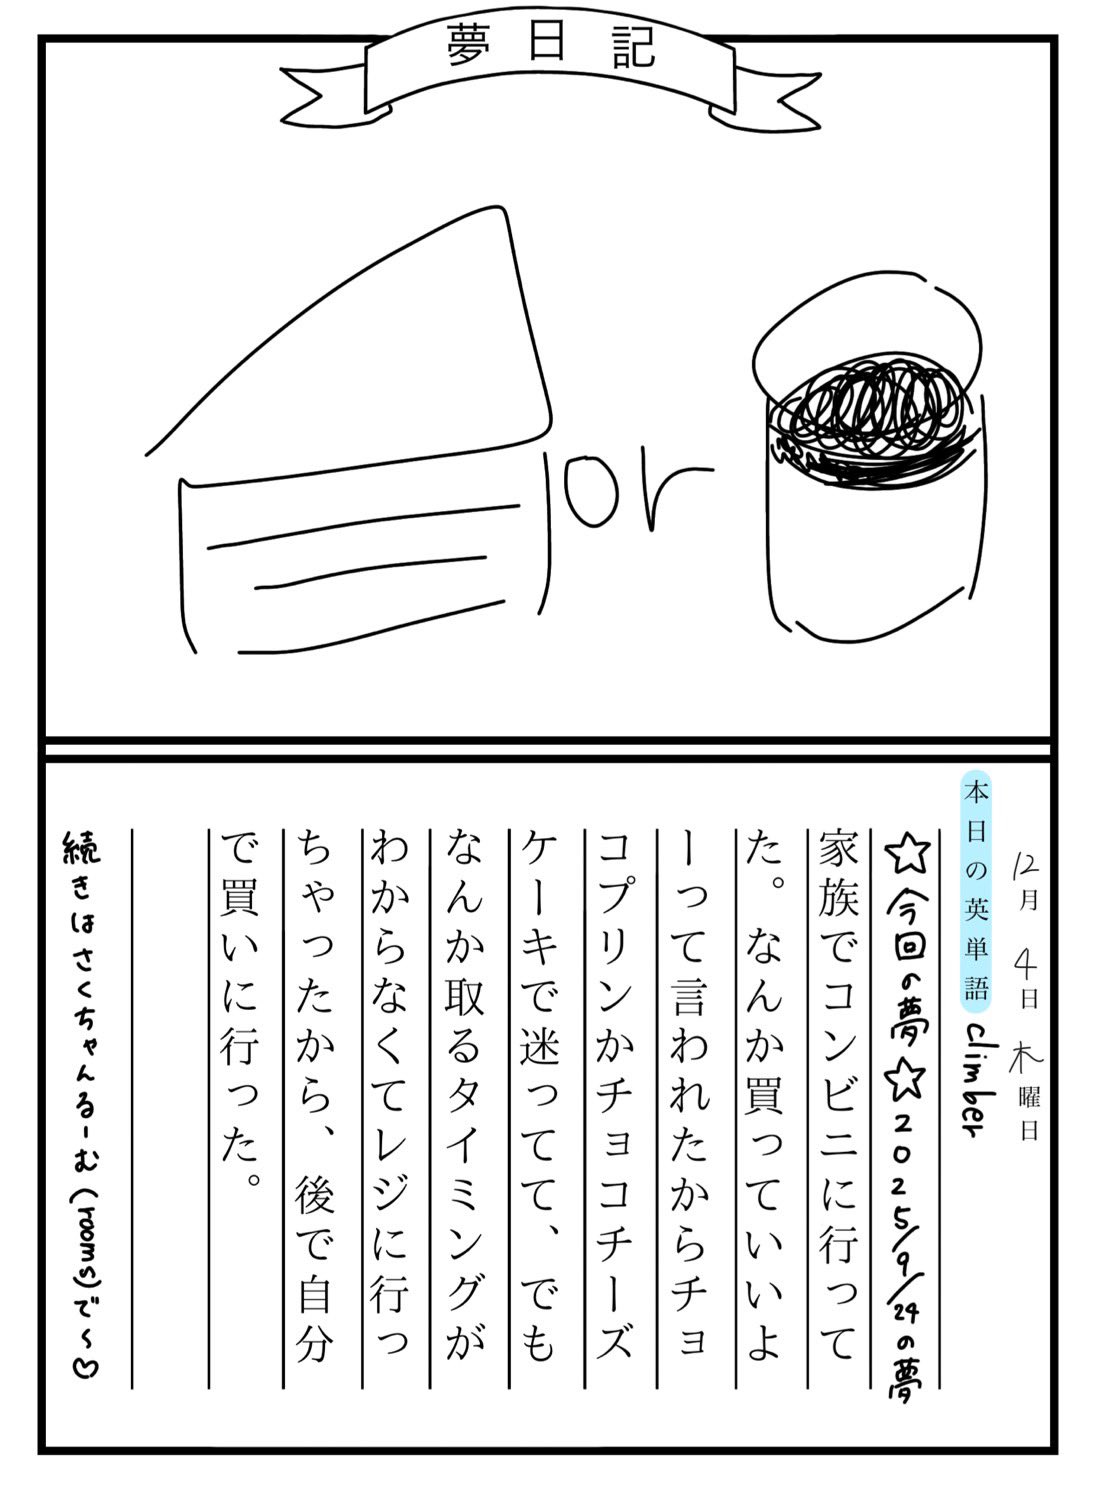 夢日記
or
12月 4日 木曜日
本日の英単語 climber
☆今回の夢☆2025/9/24の夢
家族でコンビニに行って
た。なんか買っていいよ
ーって言われたからチョ
コプリンかチョコチーズ
ケーキで迷ってて、でも
なんか取るタイミングが
わからなくてレジに行っ
ちゃったから、後で自分
で買いに行った。
続きはさくちゃんるーむ(rooms)で〜♡